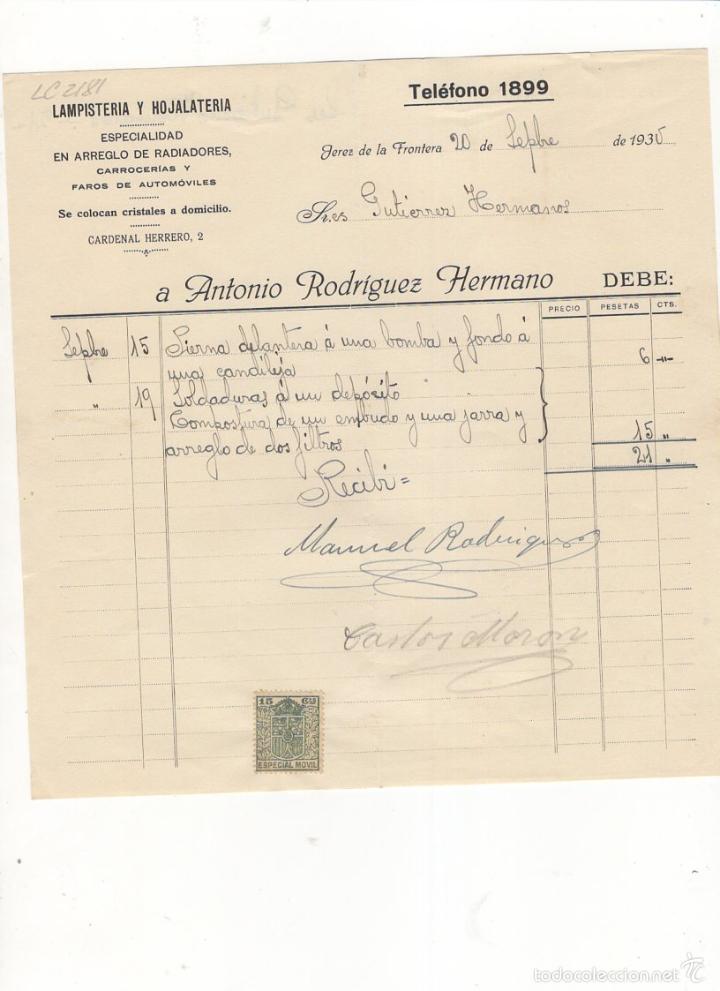 LC 2181
LAMPISTERIA Y HOJALATERIA
ESPECIALIDAD
EN ARREGLO DE RADIADORES,
CARROCERÍAS Y
FAROS DE AUTOMÓVILES
Se colocan cristales a domicilio.
CARDENAL HERRERO, 2
Teléfono 1899
Jerez de la Frontera 20 de Sepbre de 1935
Sr.es Gutierrez Hermanos
a Antonio Rodríguez Hermano DEBE:
PRECIO PESETAS CTS.
Sepbre 15 Pierna delantera á una bomba y fondo á
una candileja 6 -"-
" 19 Soldaduras á un depósito
Compostura de un embudo y una jarra y
arreglo de dos filtros 15 "
21 "
Recibi=
Manuel Rodriguez
Carlos Moron
15 Cts
ESPECIAL MOVIL
todocoleccion.net